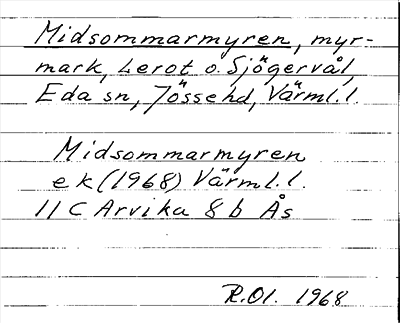 Midsommarmyren, myr-
mark, Lerot o. Sjögervål,
Eda sn, Jösse hd, Värml. l.
Midsommarmyren
ek (1968) Värml. l.
11 C Arvika 8 b Ås
R.Ol. 1968